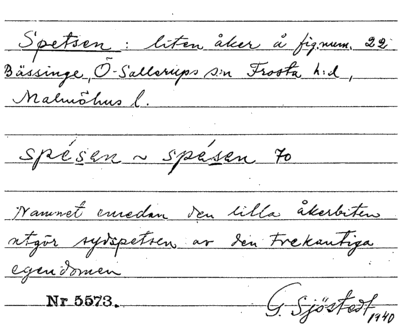 Spetsen : liten åker å fig.num. 22
Bässinge, Ö-Sallerups s:n Frosta h:d,
Malmöhus l.
spésen ~ spésen 70
Namnet emedan den lilla åkerbiten
utgör sydspetsen av den trekantiga
egendomen
Nr 5573.
G. Sjöstedt 1940